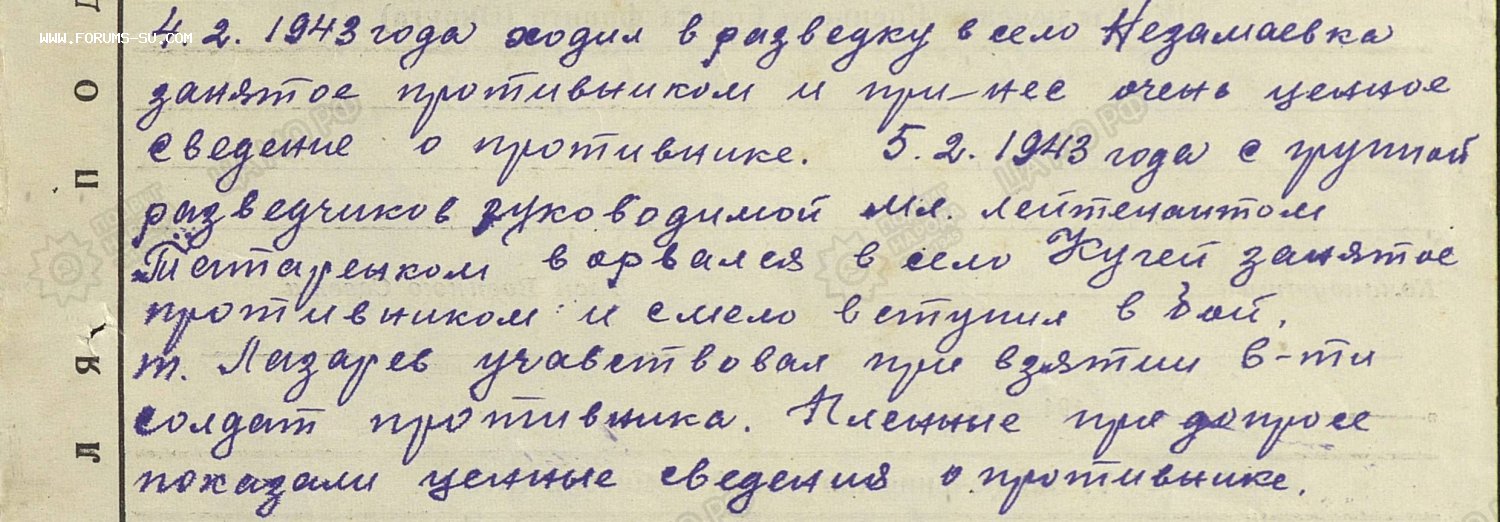 4.2.1943 года ходил в разведку в село Незамаевка
WWW.FORUMS-SU.COM
занятое противником и при-нес очень ценное
сведение о противнике. 5.2.1943 года с группой
разведчиков руководимой мл. лейтенантом
Татаренком ворвался в село Кугей занятое
противником и смело вступил в бой.
т. Лазарев учавствовал при взятии 6-ти
солдат противника. Пленные при допросе
показали ценные сведения о противнике.
П О
Л Я